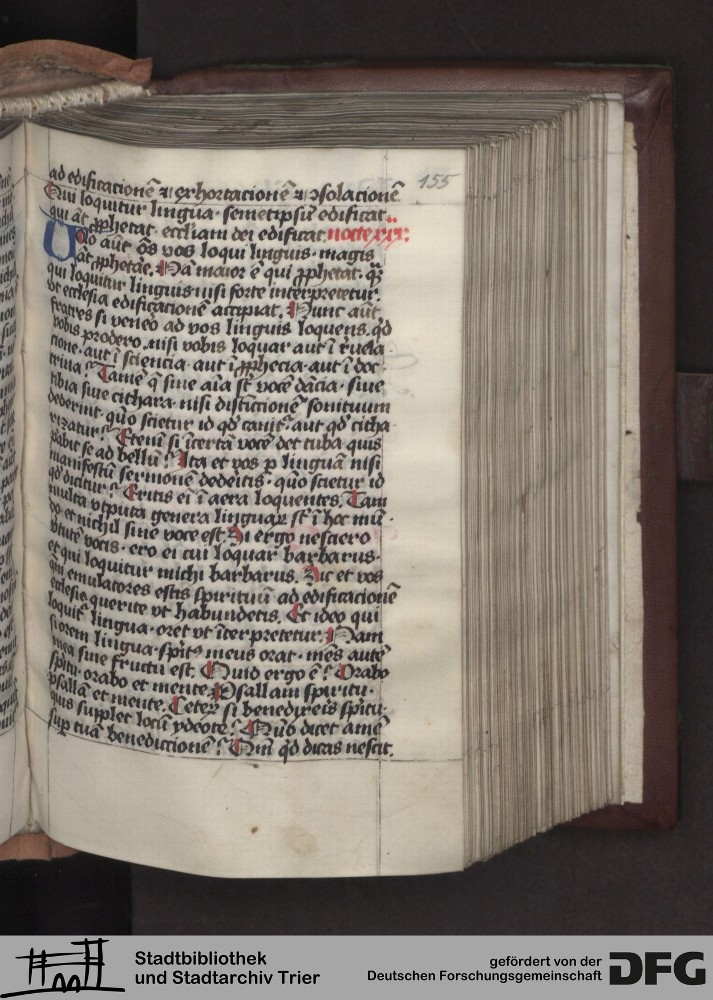 155
ad edificationē ⁊ exhortacionē ⁊ ↄsolacionē
Qui loquitur lingua · semetipsū edificat.
qui āt ꝓphetat · eccliam dei edificat. nocte xxx:
Uolo aūt ōs vos loqui linguis · magis
āt ꝓphetāe. Nā maior ē qui ꝓphetat · qȝ
qui loquitur linguis · nisi forte interpretetur.
vt ecclesia edificacionē accipiat. Nunc aūt
fratres si venero ad vos linguis loquens. qd
vobis prodero · nisi vobis loquar aut ī ruela
cione · aut ī sciencia · aut ī ꝓphecia · aut ī doc
trina? Tamē q̄ sine aīa st̄ vocē dācia · siue
tibia siue cithara · nisi distinctionē sonituum
dederint · quō scietur id qd canit̄ · aut qd citha
rizatur? Etenī si īcertā vocē det tuba quis
pabit se ad bellū? Ita et vos p linguā nisi
manifestū sermonē dederitis · quō scietur id
qd dicitur? Eritis eī ī aera loquentes. Tam
multa vtputa genera linguaꝝ st̄ ī hoc mū
do · et nichil sine voce est. Si ergo nesciero
v̄tutē vocis · ero ei cui loquar barbarus ·
et qui loquitur michi barbarus. Sic et vos
qm̄ emulatores estis spirituū ad edificationē
ecclesie querite vt habundetis. Et ideo qui
loquit̄ lingua · oret vt īterpretetur. Nam
si orem lingua · spūs meus orat · mēs autē
mea sine fructu est. Quid ergo ē? Orabo
spū · orabo et mente. Psallam spiritu ·
psallā et mente. Ceterū si benedixeis spū ·
quis supplet locū ydeote? Quō dicet amē
sup tuā benedictionē? Qm̄ qd dicas nescit.
Stadtbibliothek
und Stadtarchiv Trier
gefördert von der
Deutschen Forschungsgemeinschaft
DFG